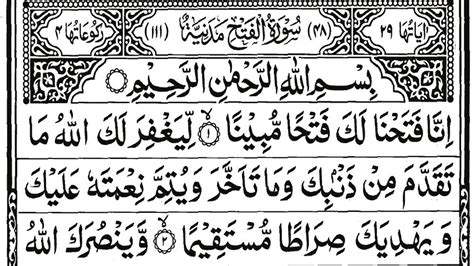 اٰیاتها ۲۹ (۴۸) سُوْرَةُ الْفَتْحِ مَدَنِيَّةٌ (۱۱۱) رکوعاتها ۴
بِسْمِ اللهِ الرَّحْمٰنِ الرَّحِيْمِ
اِنَّا فَتَحْنَا لَكَ فَتْحًا مُّبِيْنًا ۙ﴿۱﴾ لِّيَغْفِرَ لَكَ اللهُ مَا
تَقَدَّمَ مِنْ ذَنْۢبِكَ وَمَا تَاَخَّرَ وَيُتِمَّ نِعْمَتَهٗ عَلَيْكَ
وَ يَهْدِيَكَ صِرَاطًا مُّسْتَقِيْمًا ۙ﴿۲﴾ وَّيَنْصُرَكَ اللهُ